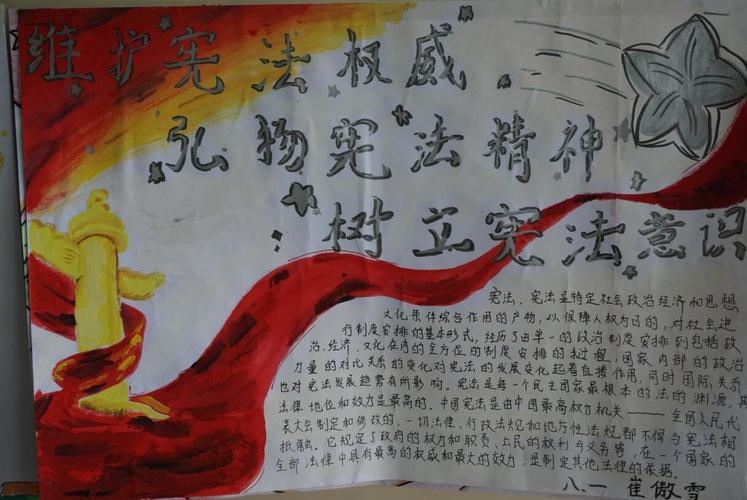 维护宪法权威
弘扬宪法精神
树立宪法意识
宪法，宪法是特定社会政治经济和思想
文化条件综合作用的产物，以保障人权为目的，对社会进
行制度安排的基本形式，经历了由单一的政治制度安排到包括政
治、经济、文化在内的全方位的制度安排的过程，国家内部的政治
力量的对比关系的变化对宪法的发展变化起着直接作用，同时国际关系
也对宪法发展趋势有所影响。宪法是每一个民主国家最根本的法的渊源，其
法律地位和效力是最高的。中国宪法是由中国最高权力机关——全国人民代
表大会制定和修改的，一切法律、行政法规和地方性法规都不得与宪法相
抵触。它规定了政府的权力和职责、公民的权利与义务等，在一个国家的
全部法律中具有最高的权威和最大的效力，是制定其他法律的依据。
八.一 崔傲雪